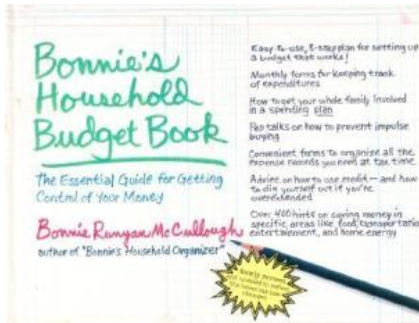 Bonnie's
Household
Budget Book
The Essential Guide for Getting
Control of Your Money
Bonnie Runyan McCullough
author of "Bonnie's Household Organizer"
Easy-to-use, 8-step plan for setting up
a budget that works!
Monthly forms for keeping track
of expenditures
How to get your whole family involved
in a spending plan
Pep talks on how to prevent impulse
buying
Convenient forms to organize all the
expense records you need at tax time
Advice on how to use credit—and how
to dig yourself out if you're
overextended
Over 400 hints on saving money in
specific areas like food, transportation
entertainment, and home energy